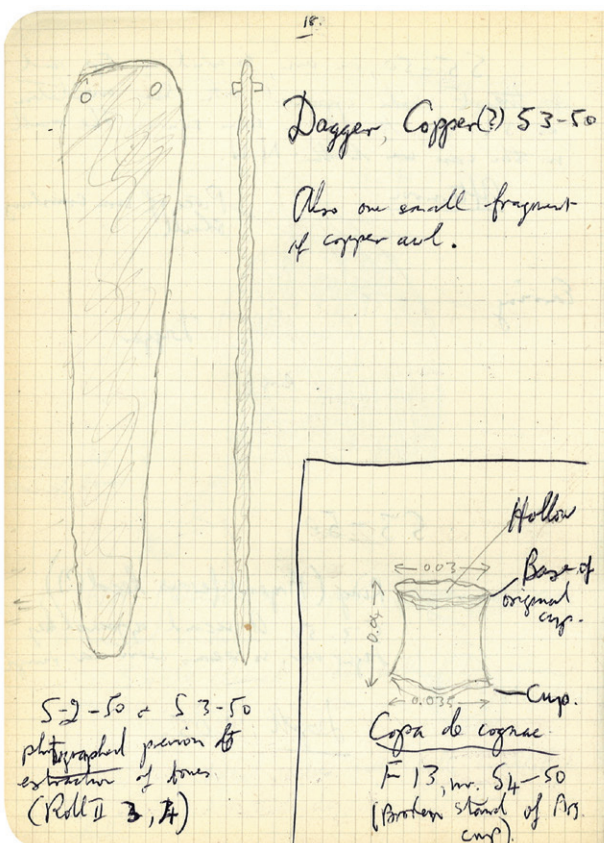 18.
Dagger, Copper(?) S3-50
Also one small fragment
of copper awl.
S-2-50 & S3-50
photographed previous to
extraction of bones
(Roll II 3, 4)
Hollow
Base of
original
cup.
0.03
0.04
0.035
Cup.
Copa de cognac.
F 13, nr. S4-50
(Broken stand of
cup).